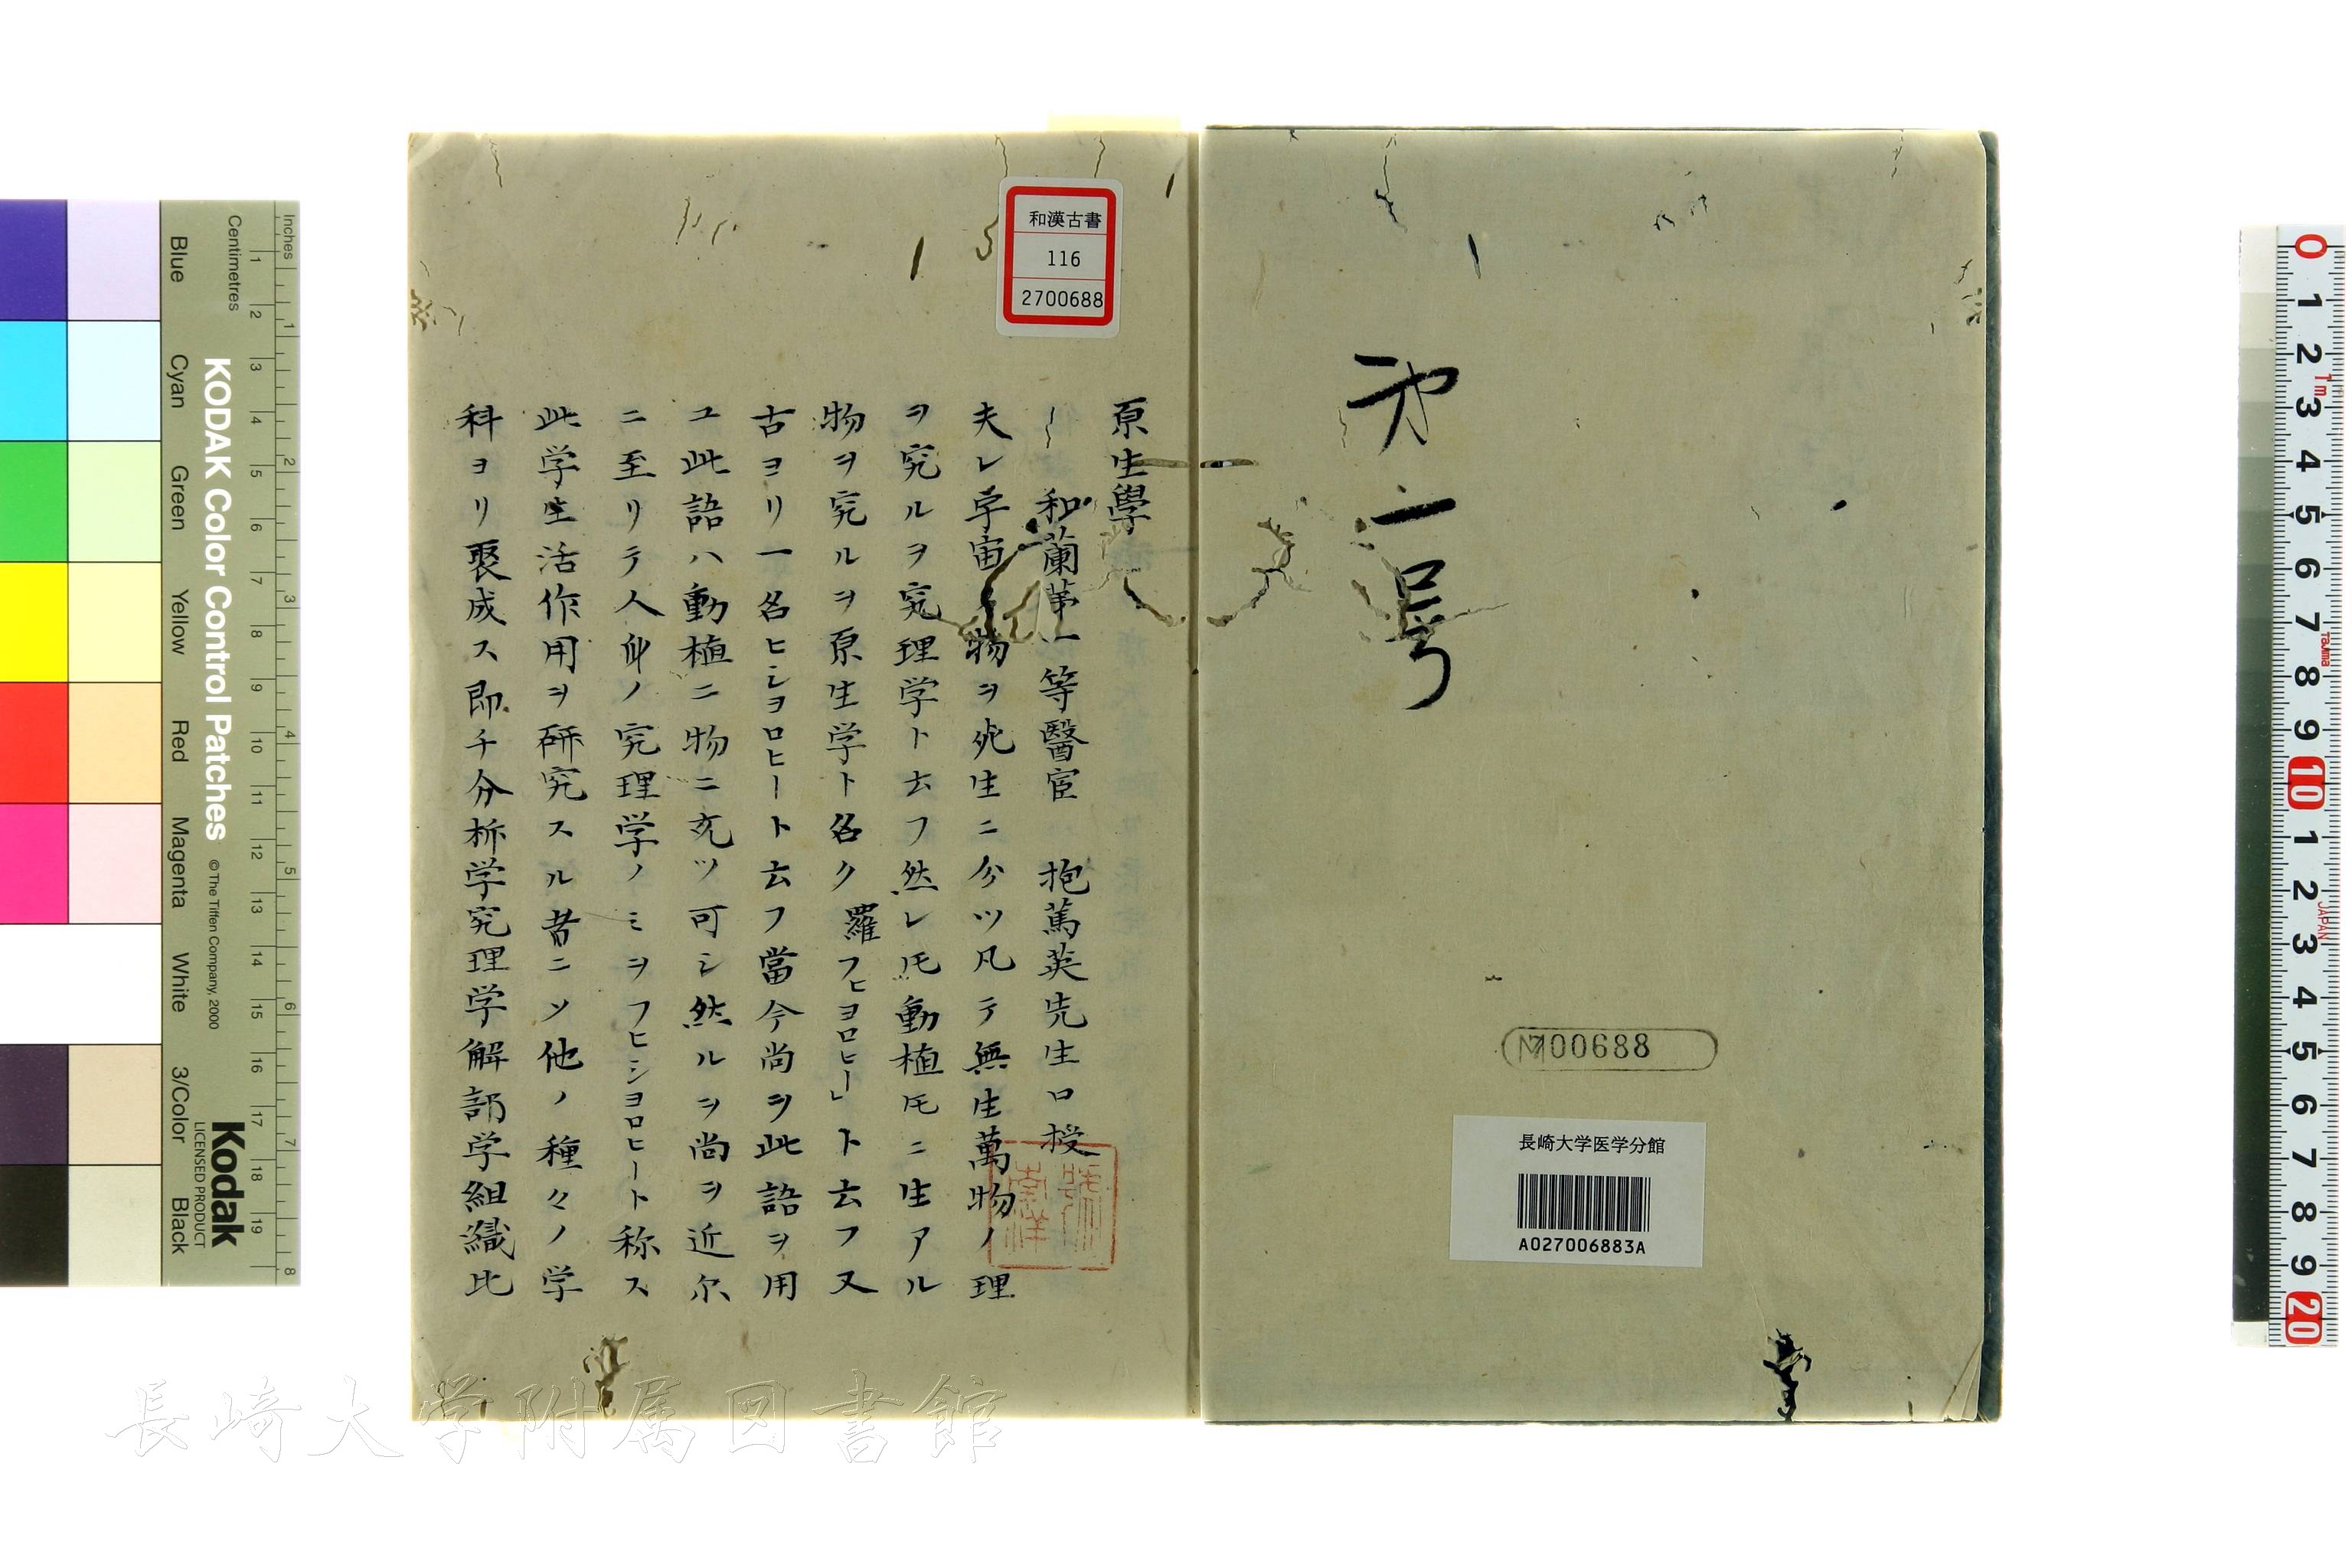 第一号
M700688
長崎大学医学分館
A027006883A
和漢古書
116
2700688
原生學
和蘭第一等醫官 抱篤英先生口授
夫レ宇宙ノ物ヲ死生ニ分ツ凡テ無生萬物ノ理
ヲ究ルヲ究理学ト云フ然レ𪜈動植𪜈ニ生アル
物ヲ究ルヲ原生学ト名ク羅フヒヨロヒー」ト云フ又
古ヨリ一名ヒシヨロヒートト云フ當今尚ヲ此語ヲ用
ユ此語ハ動植ニ物ニ充ツ可シ然ルヲ尚ヲ近尓
ニ至リテ人身ノ究理学ノミヲフヒシヨロヒート称ス
此学生活作用ヲ研究スル者ニ〆他ノ種々ノ学
科ヨリ聚成ス即チ分析学究理学解剖学組織比
長崎大学附属図書館
Inches
Centimetres
KODAK Color Control Patches
© The Tiffen Company, 2000
Kodak
LICENSED PRODUCT
Blue
Cyan
Green
Yellow
Red
Magenta
White
3/Color
Black
1 2 3 4 5 6 7 8 9 10 11 12 13 14 15 16 17 18 19
1 2 3 4 5 6 7 8
0 1 2 3 4 5 6 7 8 9 10 1 2 3 4 5 6 7 8 9 20
1m
Tajima
JAPAN